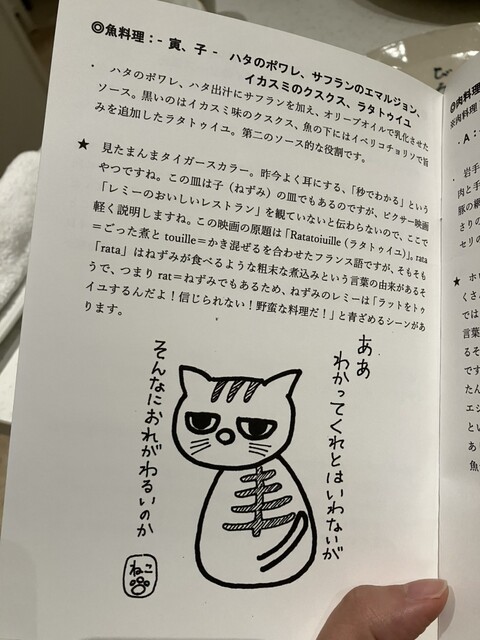 ◎魚料理：- 寅、子 -　ハタのポワレ、サフランのエマルジョン、
イカスミのクスクス、ラタトゥイユ
・　ハタのポワレ、ハタ出汁にサフランを加え、オリーブオイルで乳化させた
ソース。黒いのはイカスミ味のクスクス、魚の下にはイベリコチョリンで旨
みを追加したラタトゥイユ。第二のソース的な役割です。
★　見たまんまタイガースカラー。昨今よく耳にする、「秒でわかる」という
やつですね。この皿は子（ねずみ）の皿でもあるのですが、ピクサー映画
「レミーのおいしいレストラン」を観ていないと伝わらないので、ここで
軽く説明しますね。この映画の原題は「Ratatoiuille (ラタトゥイユ)」。rata
＝ごった煮と touille＝かき混ぜるを合わせたフランス語ですが、そもそも
「rata」はねずみが食べるような粗末な煮込みという言葉の由来があるそ
うで、つまり rat＝ねずみでもあるため、ねずみのレミーは「ラットをトゥ
イユするんだよ！信じられない！野蛮な料理だ！」と青ざめるシーンがあ
ります。
ああ
わかってくれとはいわないが
そんなにおれがわるいのか
ねこ
◎肉料理
※肉料理
・A：
・岩手
肉と手
豚の網
さりの
セリの
★　ホ
くさ
では
言葉
るそ
です
たと
エシ
とい
あり
魚